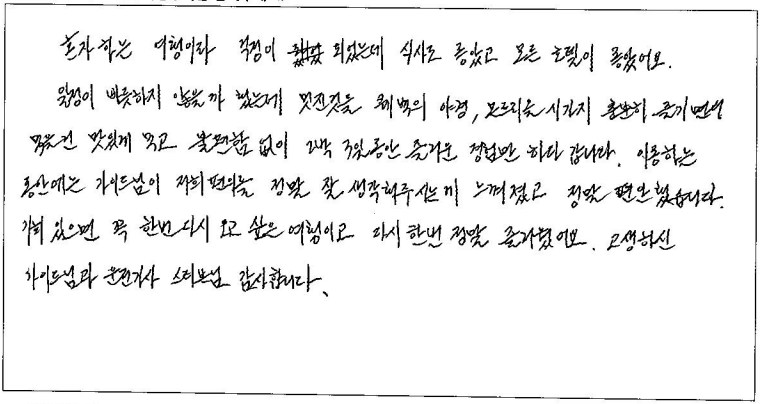 혼자 하는 여행이라 걱정이 되었는데 식사도 좋았고 모든 호텔이 좋았어요.
일정이 빠듯하지 않을까 했는데 멋진것들 퀘벡의 야경, 몬트리올 시가지 충분히 즐기면서
먹는건 맛있게 먹고 불편함 없이 2박 3일동안 즐거운 경험만 하다 갑니다. 이동하는
동안에는 가이드님이 저희편의를 정말 잘 생각해주시는게 느껴졌고 정말 편안했습니다.
기회 있으면 꼭 한번 다시 오고 싶은 여행이고 다시한번 정말 즐거웠어요. 고생하신
가이드님과 운전기사 스티브님 감사합니다.